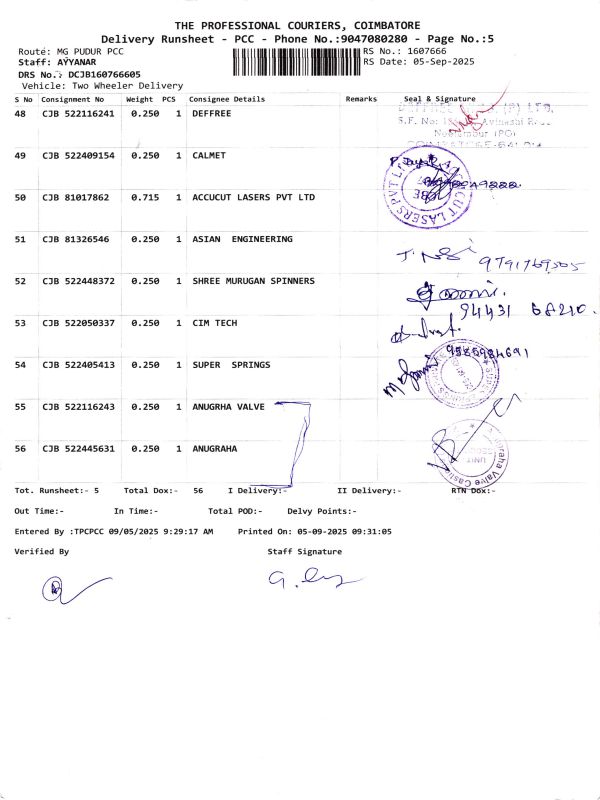 THE PROFESSIONAL COURIERS, COIMBATORE
Delivery Runsheet - PCC - Phone No.:9047080280 - Page No.:5
Route: MG PUDUR PCC RS No.: 1607666
Staff: AYYANAR RS Date: 05-Sep-2025
DRS No.: DCJB160766605
Vehicle: Two Wheeler Delivery
S No Consignment No Weight PCS Consignee Details Remarks Seal & Signature
48 CJB 522116241 0.250 1 DEFFREE
49 CJB 522409154 0.250 1 CALMET
50 CJB 81017862 0.715 1 ACCUCUT LASERS PVT LTD
51 CJB 81326546 0.250 1 ASIAN ENGINEERING
9791769505
52 CJB 522448372 0.250 1 SHREE MURUGAN SPINNERS
94431 68210
53 CJB 522050337 0.250 1 CIM TECH
9585984691
54 CJB 522405413 0.250 1 SUPER SPRINGS
55 CJB 522116243 0.250 1 ANUGRHA VALVE
56 CJB 522445631 0.250 1 ANUGRAHA
Tot. Runsheet:- 5 Total Dox:- 56 I Delivery:- II Delivery:- RTN Dox:-
Out Time:- In Time:- Total POD:- Delvy Points:-
Entered By :TPCPCC 09/05/2025 9:29:17 AM Printed On: 05-09-2025 09:31:05
Verified By Staff Signature